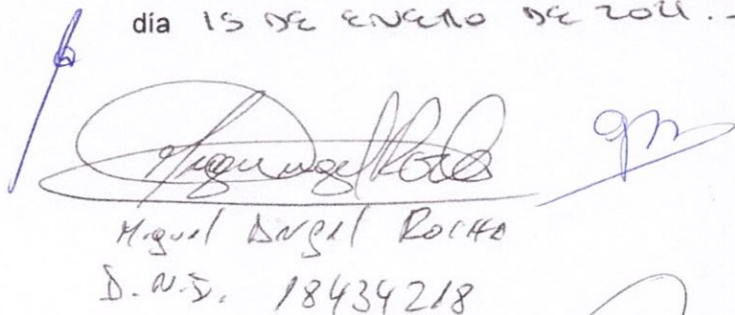 día 15 DE ENERO DE 2021.-
Miguel Angel Rocha
Miguel Angel ROCHA
D.N.I. 18434218